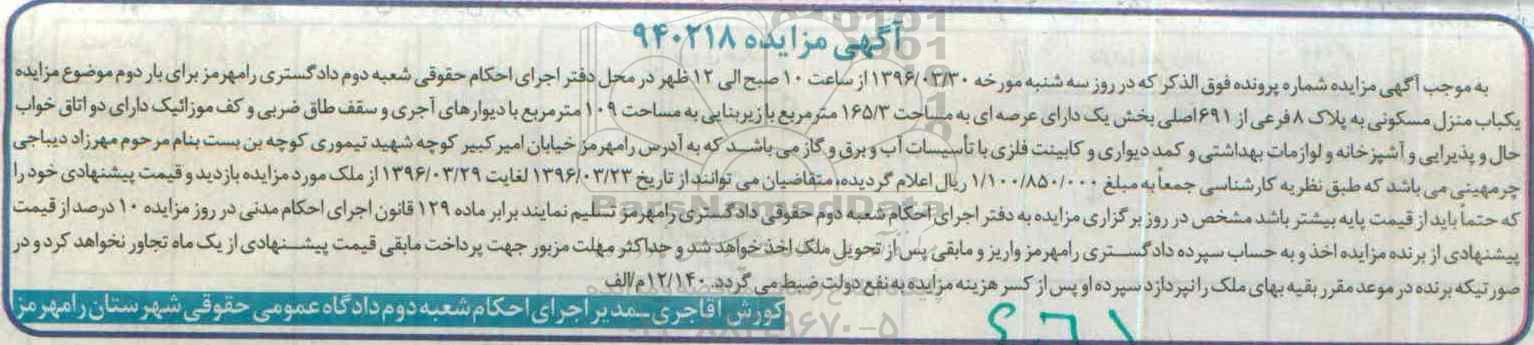 آگهی مزایده ۹۴۰۲۱۸
به موجب آگهی مزایده شماره پرونده فوق الذکر که در روز سه شنبه مورخه ۱۳۹۶/۰۳/۳۰ از ساعت ۱۰ صبح الی ۱۲ ظهر در محل دفتر اجرای احکام حقوقی شعبه دوم دادگستری رامهرمز برای بار دوم موضوع مزایده
یکباب منزل مسکونی به پلاک ۸ فرعی از ۶۹۱ اصلی بخش یک دارای عرصه ای به مساحت ۱۶۵/۳ مترمربع با زیربنایی به مساحت ۱۰۹ مترمربع با دیوارهای آجری و سقف طاق ضربی و کف موزائیک دارای دو اتاق خواب
حال و پذیرایی و آشپزخانه و لوازمات بهداشتی و کمد دیواری و کابینت فلزی با تأسیسات آب و برق و گاز می باشد که به آدرس رامهرمز خیابان امیرکبیر کوچه شهید تیموری کوچه بن بست بنام مرحوم مهرزاد دیباجی
چرمهینی می باشد که طبق نظریه کارشناسی جمعاً به مبلغ ۱/۱۰۰/۸۵۰/۰۰۰ ریال اعلام گردیده، متقاضیان می توانند از تاریخ ۱۳۹۶/۰۳/۲۳ لغایت ۱۳۹۶/۰۳/۲۹ از ملک مورد مزایده بازدید و قیمت پیشنهادی خود را
که حتماً باید از قیمت پایه بیشتر باشد مشخص در روز برگزاری مزایده به دفتر اجرای احکام شعبه دوم حقوقی دادگستری رامهرمز تسلیم نمایند برابر ماده ۱۲۹ قانون اجرای احکام مدنی در روز مزایده ۱۰ درصد از قیمت
پیشنهادی از برنده مزایده اخذ و به حساب سپرده دادگستری رامهرمز واریز و مابقی پس از تحویل ملک اخذ خواهد شد و حداکثر مهلت مزبور جهت پرداخت مابقی قیمت پیشنهادی از یک ماه تجاوز نخواهد کرد و در
صورتیکه برنده در موعد مقرر بقیه بهای ملک را نپردازد سپرده او پس از کسر هزینه مزایده به نفع دولت ضبط می گردد. ۱۲/۱۴۰/م/الف
کورش آقاجری – مدیر اجرای احکام شعبه دوم دادگاه عمومی حقوقی شهرستان رامهرمز
ParsNamadData